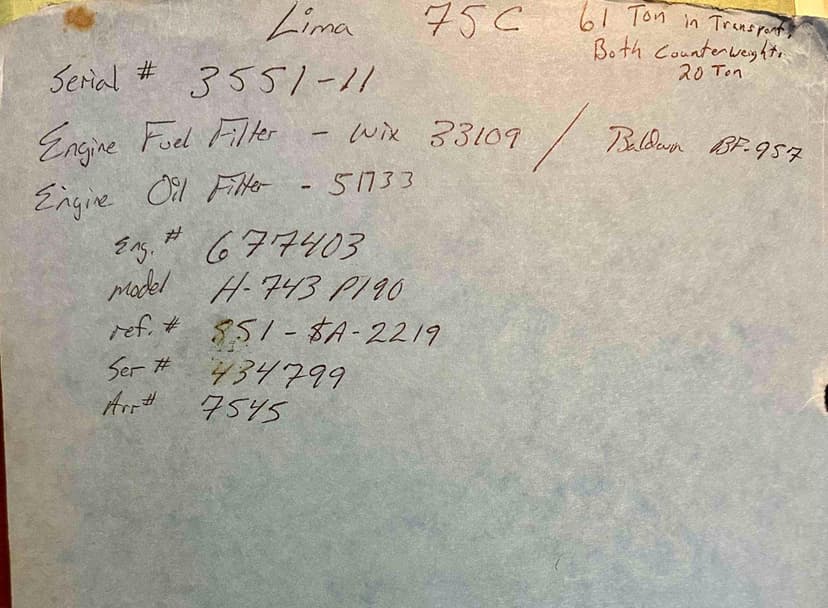 Lima 75C 61 Ton in Transport,
Both Counterweights
20 Ton
Serial # 3551-11
Engine Fuel Filter - Wix 33109 / Baldwin BF-957
Engine Oil Filter - 51733
Eng. # 677403
model H-743 P190
ref. # 851-$A-2219
Ser # 434799
Arr# 7545